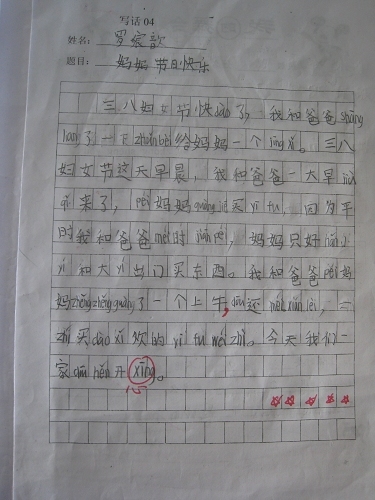 写话04
姓名: 罗宸歆
题目: 妈妈 节日快乐
三八妇女节快dào了,我和爸爸shāng
liang了一下zhǔnbèi给妈妈一个jīng xǐ。三八
妇女节这天早晨,我和爸爸一大早jiù
qǐ来了,péi妈妈guàng jiē买yī fu,因为平
时我和爸爸méi时jiān péi,妈妈只好
yí和大yí出门买东西。我和爸爸péi妈
妈zhěng zhěng guàng了一个上午,dōu还méi xián lèi,一
zhí买dào xǐ欢的yī fu wéi zhǐ。今天我们一
家dōu hěn开xīng。